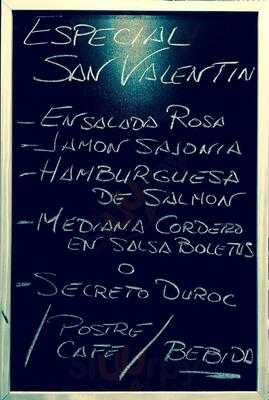 ESPECIAL
SAN VALENTIN
- ENSALADA ROSA
- JAMON SAJONIA
- HAMBURGUESA
DE SALMON
- MEDIANA CORDERO
EN SALSA BOLETUS
O
- SECRETO DUROC
/ POSTRE
CAFE / BEBIDA